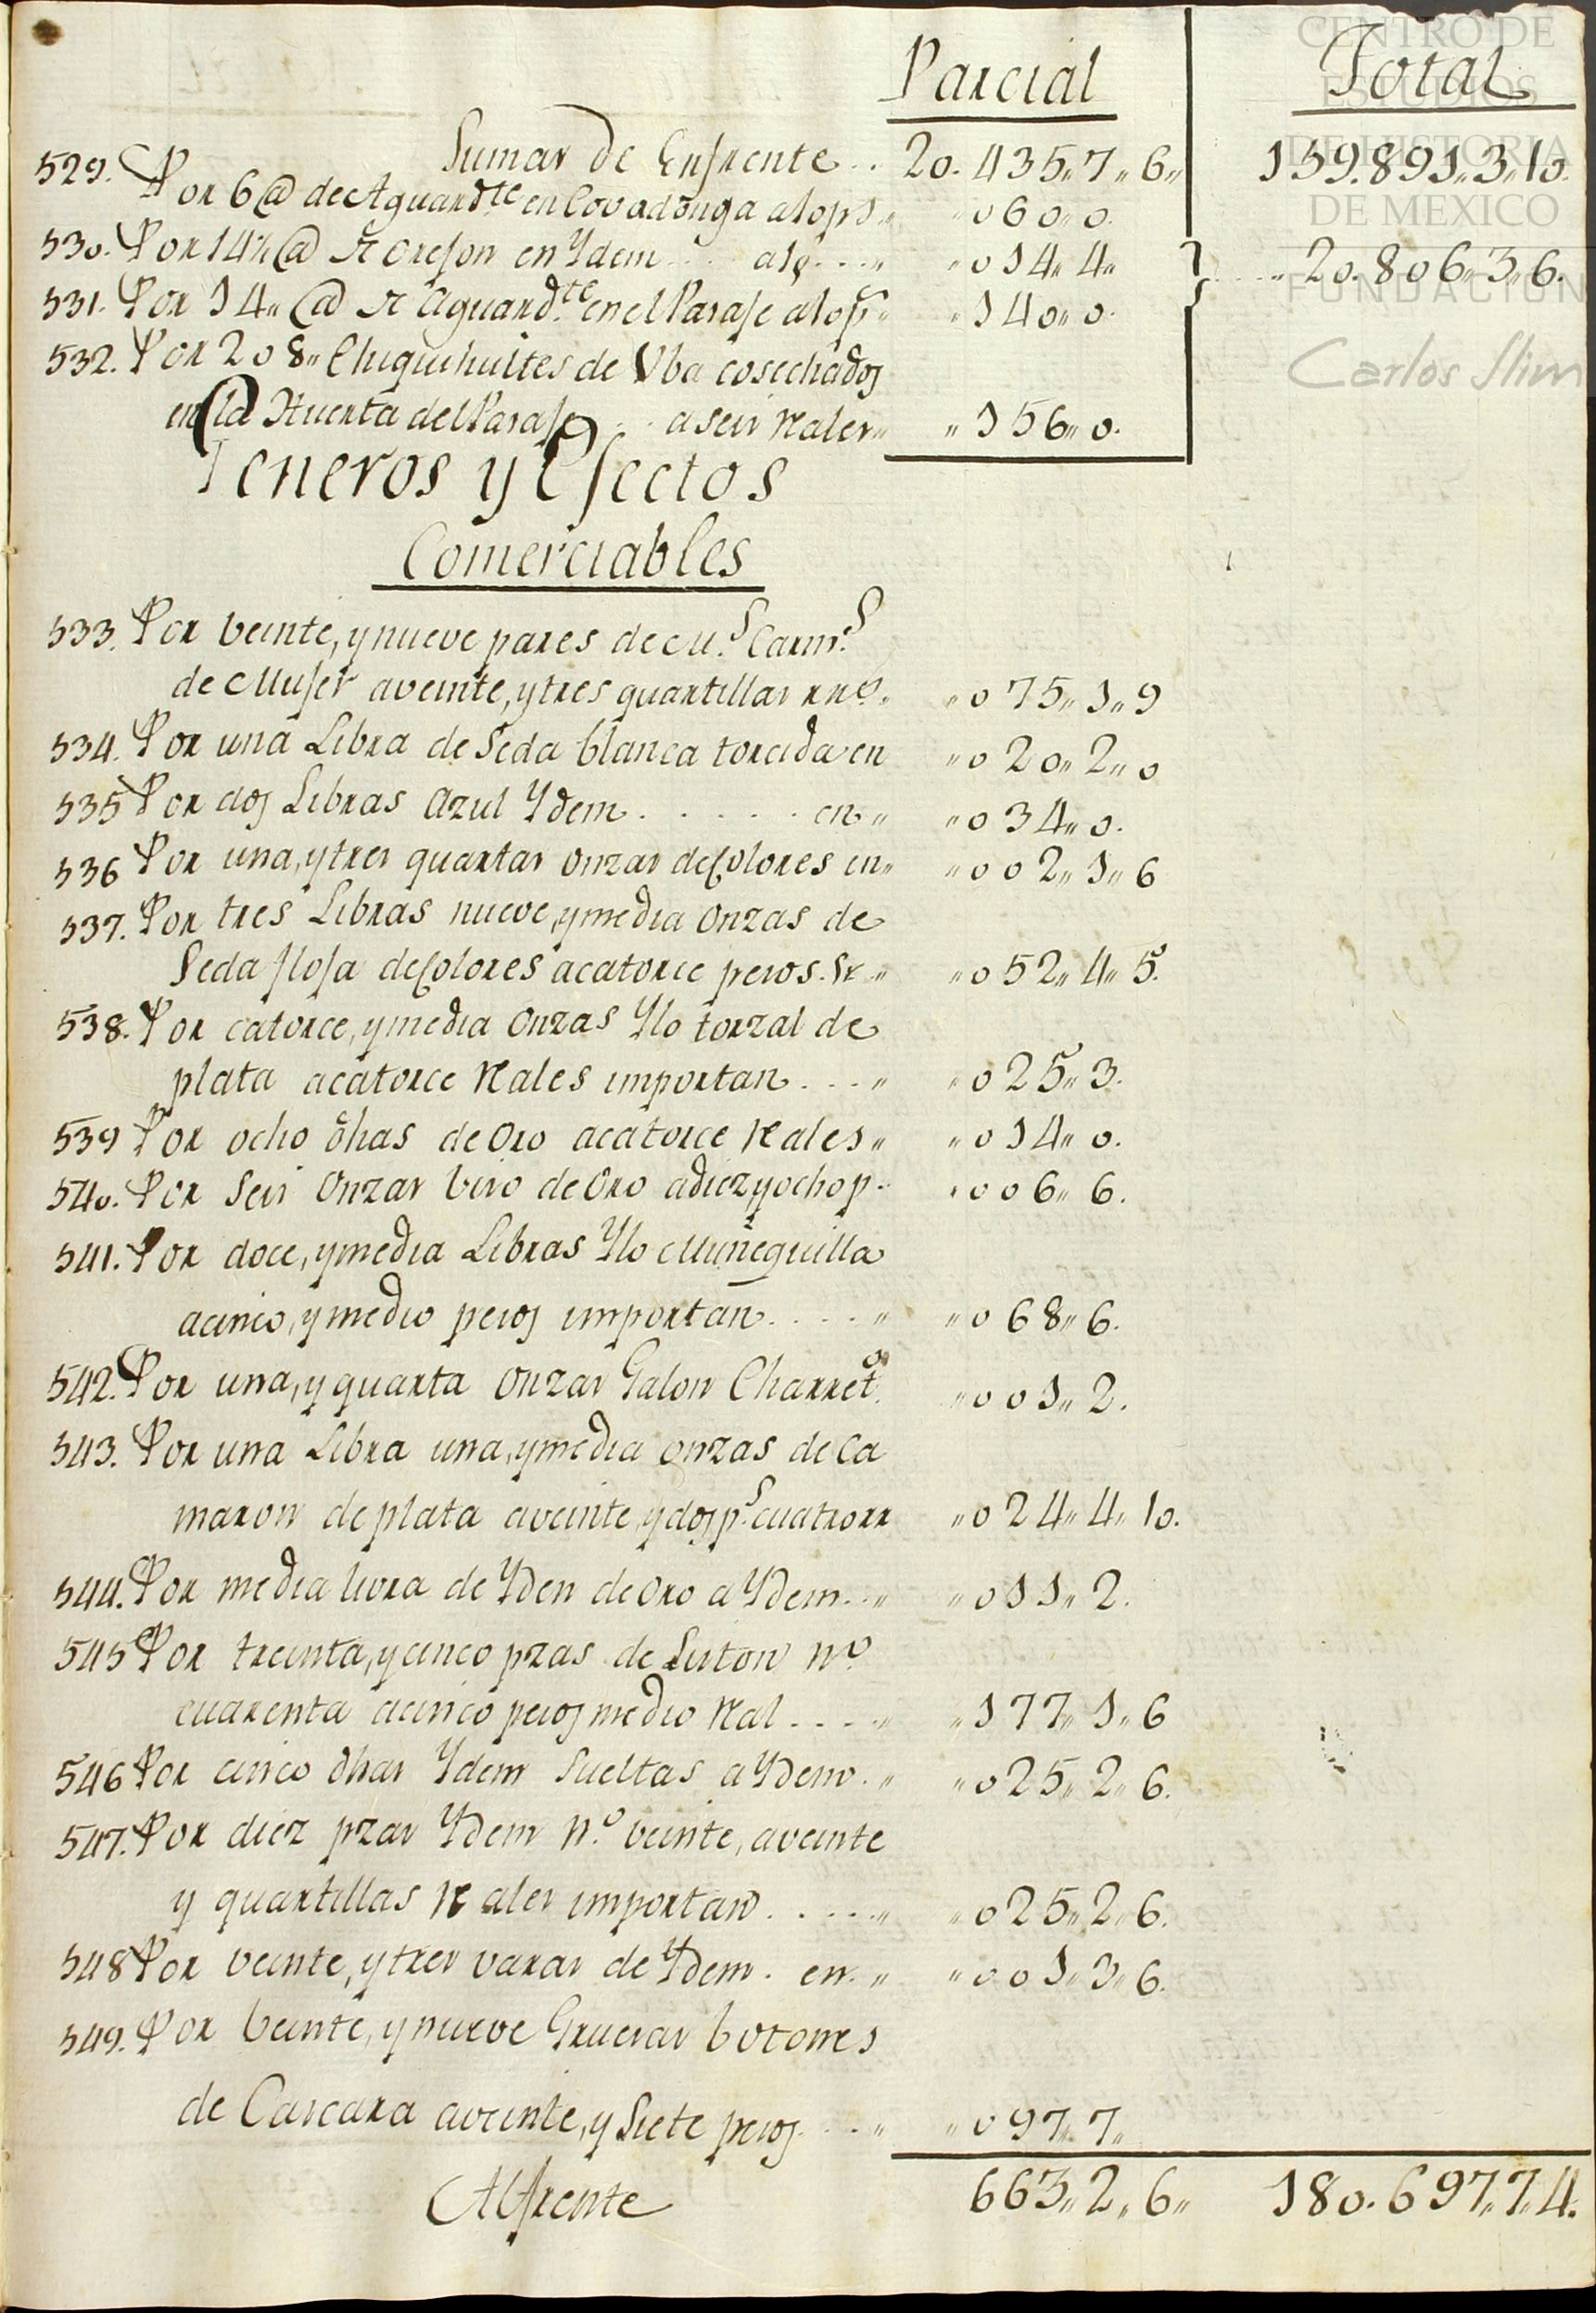 Parcial Total
Sumas de Enfrente .. 20.435,,7,,6,, 159.891,,3,,10.
529. Por 6 @ de Aguardte en Covadonga a 10 ps ,, ,,060,,0.
530. Por 14½ @ de Orejon en Ydem ... a 1 p ....,, ,,014,,4,, } ....,,20.806,,3,,6.
531. Por 14,, @ de Aguardte en el Parage a 10 ps ,, ,,140,,0.
532. Por 208,, Chiquihuites de Uba cosechados
en la Huerta del Parage .. a seis Reales ,, ,,156,,0.
Jeneros y Efectos
Comerciables
533. Por veinte, y nueve pares de Ms Carms
de Muger a veinte, y tres quartillas rrs ,, ,,075,,1,,9
534. Por una Libra de Seda blanca torcida en ,,020,,2,,0
535 Por dos Libras Azul Ydem ..... en ,, ,,034,,0.
536 Por una, y tres quartas onzas de Colores en ,, ,,002,,1,,6
537. Por tres Libras nueve, y media Onzas de
Seda floja de Colores a catorce pesos ,, ,,052,,4,,5.
538. Por catorce, y media Onzas Ylo torzal de
plata a catorce Reales importan ...,, ,,025,,3.
539 Por ocho dhas de Oro a catorce Reales ,, ,,014,,0.
540. Por Seis Onzas Viso de Oro a diez y ocho p. ,,006,,6.
541. Por doce, y media Libras Ylo Muñequilla
a cinco, y medio pesos importan ....,, ,,068,,6.
542. Por una, y quarta Onzas Galon Charreto. ,,001,,2.
543. Por una Libra una, y media onzas de Ca
maron de plata a veinte, y dos ps cuatro rr ,,024,,4,,10.
544. Por media livra de Yden de Oro a Ydem ..,, ,,011,,2.
545 Por treinta, y cinco pzas de Liston No
cuarenta a cinco pesos medio Real ....,, ,,177,,1,,6
546 Por cinco dhas Ydem Sueltas a Ydem .,, ,,025,,2,,6.
547. Por diez pzas Ydem No veinte, a veinte
y quartillas Reales importan .....,, ,,025,,2,,6.
548 Por veinte, y tres varas de Ydem. en ,, ,,001,,3,,6.
549. Por veinte, y nueve Gruesas botones
de Cascara a veinte, y Siete pesos ...,, ,,097,,7,,
Al frente 663,,2,,6,, 180.697,,7,,4.
CENTRO DE
ESTUDIOS
DE HISTORIA
DE MEXICO
FUNDACION
Carlos Slim